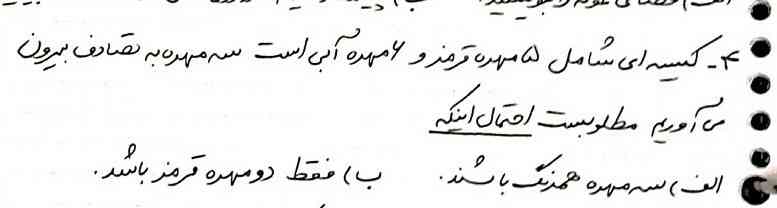 ۴- کیسه‌ای شامل ۵ مهره قرمز و ۶ مهره آبی است سه مهره به تصادف بیرون
می‌آوریم مطلوبست احتمال اینکه
الف) سه مهره همرنگ باشند. ب) فقط دو مهره قرمز باشد.